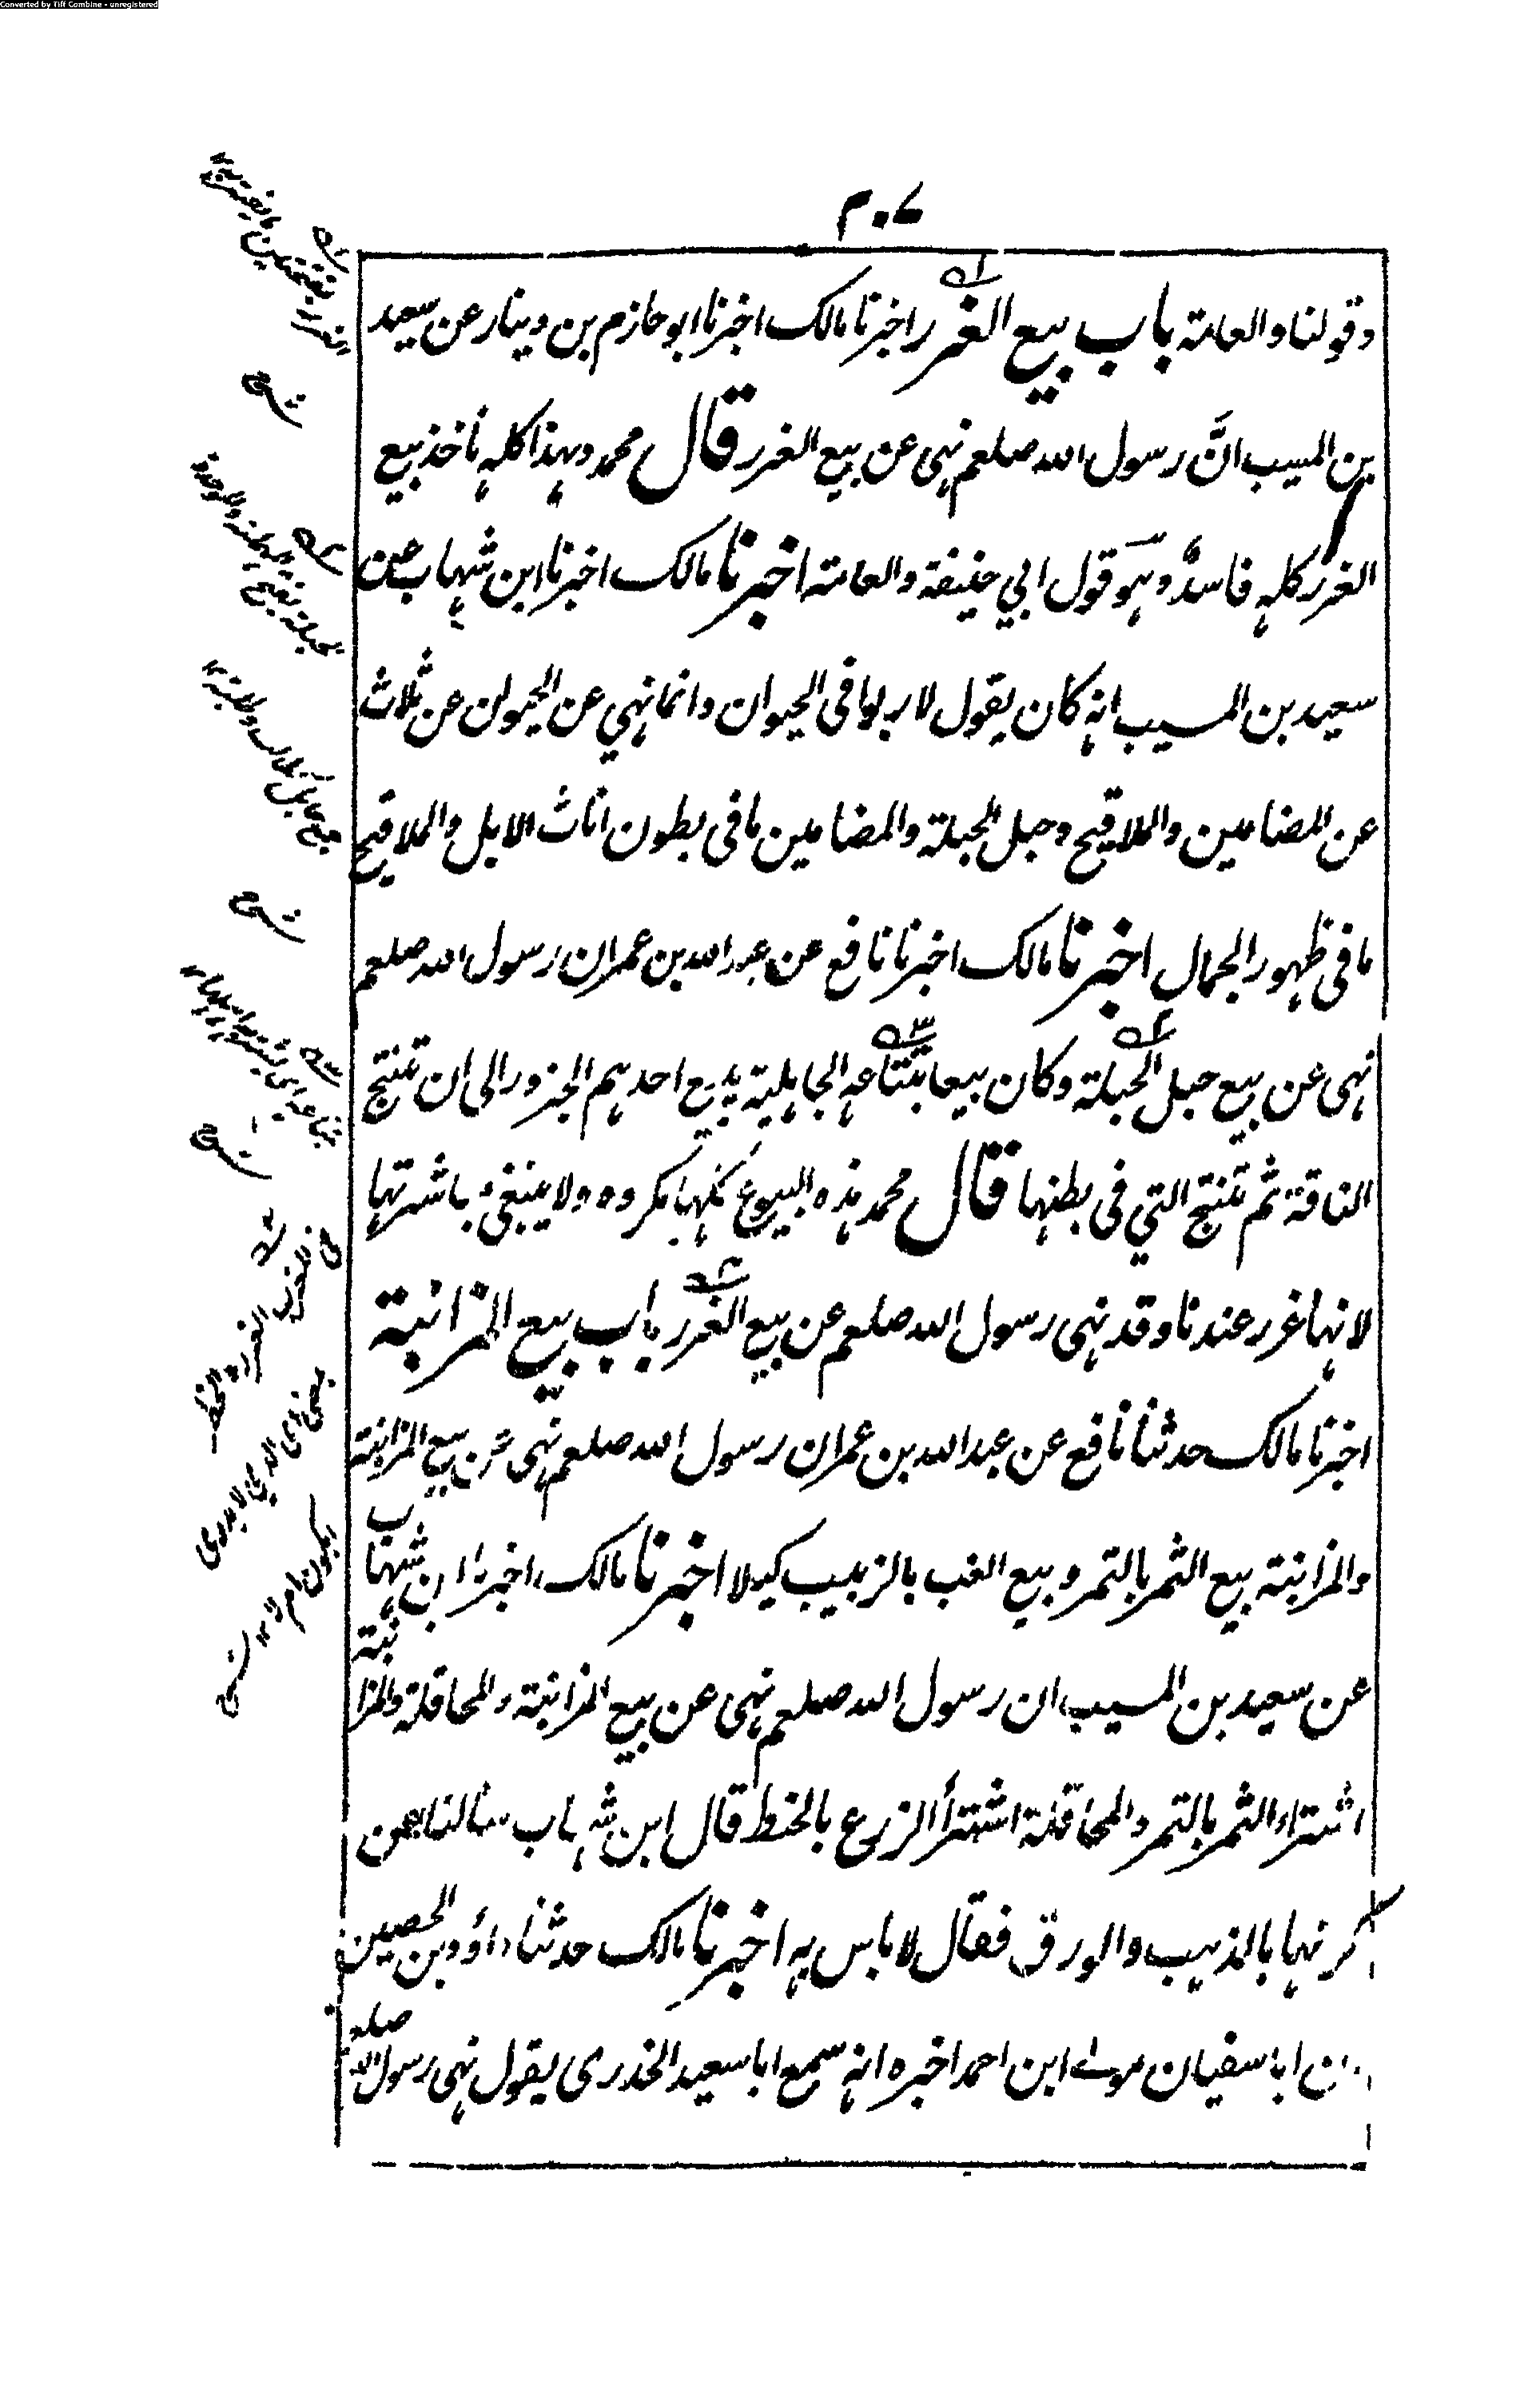 Converted by Tiff Combine - unregistered
٢٠٧
وقولنا والعامة باب بيع الغرر اخبرنا مالك اخبرنا ابو حازم بن دينار عن سعيد
بن المسيب انَّ رسول الله صلعم نهى عن بيع الغرر قال محمد وبهذا كله ناخذ بيع
الغرر كله فاسدٌ وهو قول ابي حنيفة والعامة اخبرنا مالك اخبرنا ابن شهاب عن
سعيد بن المسيب انه كان يقول لا ربوا فى الحيوان وانما نهي عن الحيوان عن ثلاث
عن المضامين والملاقيح وحبل الحبلة والمضامين ما فى بطون اناث الابل والملاقيح
ما فى ظهور الجمال اخبرنا مالك اخبرنا نافع عن عبد الله بن عمر ان رسول الله صلعم
نهى عن بيع حبل الحبلة وكان بيعا يبتاعه الجاهلية يبيع احدهم الجزور الى ان تنتج
الناقة ثم تنتج التي فى بطنها قال محمد هذه البيوع كلها مكروه ولا ينبغى مباشرتها
لانها غرر عندنا وقد نهى رسول الله صلعم عن بيع الغرر باب بيع المزابنة
اخبرنا مالك حدثنا نافع عن عبد الله بن عمر ان رسول الله صلعم نهى عن بيع المزابنة
والمزابنة بيع الثمر بالتمر وبيع العنب بالزبيب كيلا اخبرنا مالك اخبرنا ابن شهاب
عن سعيد بن المسيب ان رسول الله صلعم نهى عن بيع المزابنة والمحاقلة والمزابنة
اشتراء الثمر بالتمر والمحاقلة اشتراء الزرع بالحنطة قال ابن شهاب سالنا عن
كرنها بالذهب والورق فقال لا باس به اخبرنا مالك حدثنا داؤد بن الحصين
ان ابا سفيان مولے ابن احمد اخبره انه سمع ابا سعيد الخدرى يقول نهى رسول الله صلعم
الغرر بفتحتين
شرح
شرح
شرح